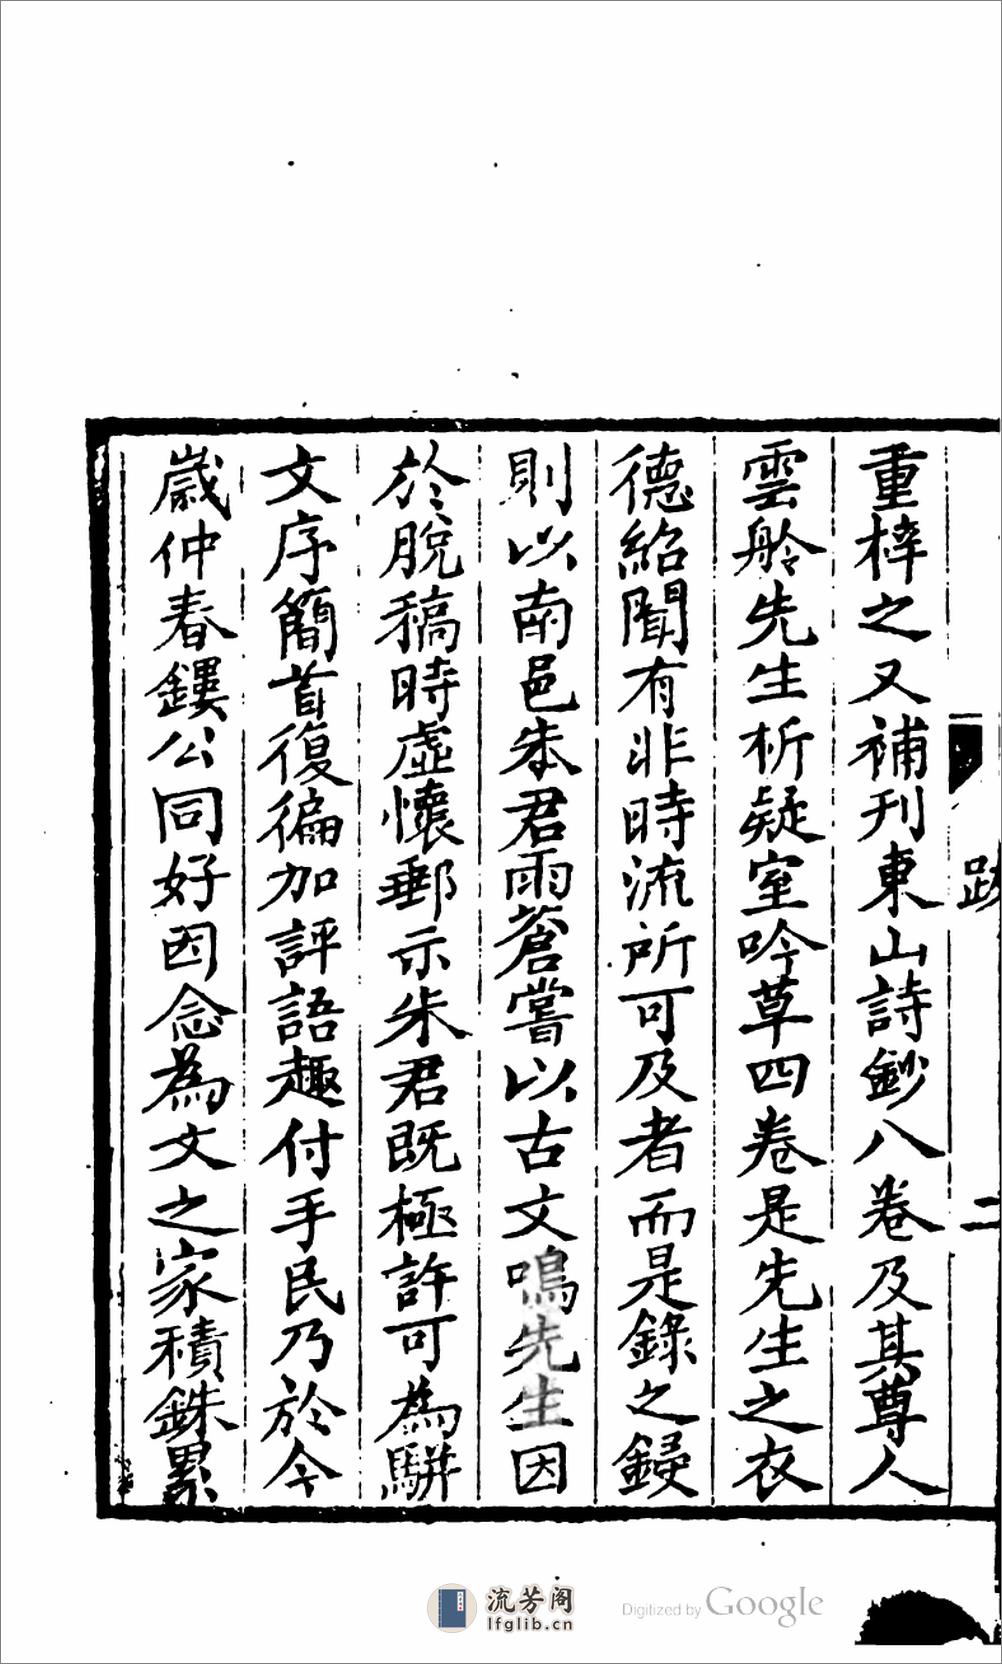 重梓之又補刊東山詩鈔八卷及其尊人
雲舲先生析疑室吟草四卷是先生之衣
德紹聞有非時流所可及者而是錄之鋟
則以南邑朱君雨蒼嘗以古文鳴先生因
於脫稿時虛懷郵示朱君既極許可為駢
文序簡首復徧加評語趣付手民乃於今
歲仲春鏤公同好因念為文之家積銖累
跋
二
流芳阁
lfglib.cn
Digitized by Google